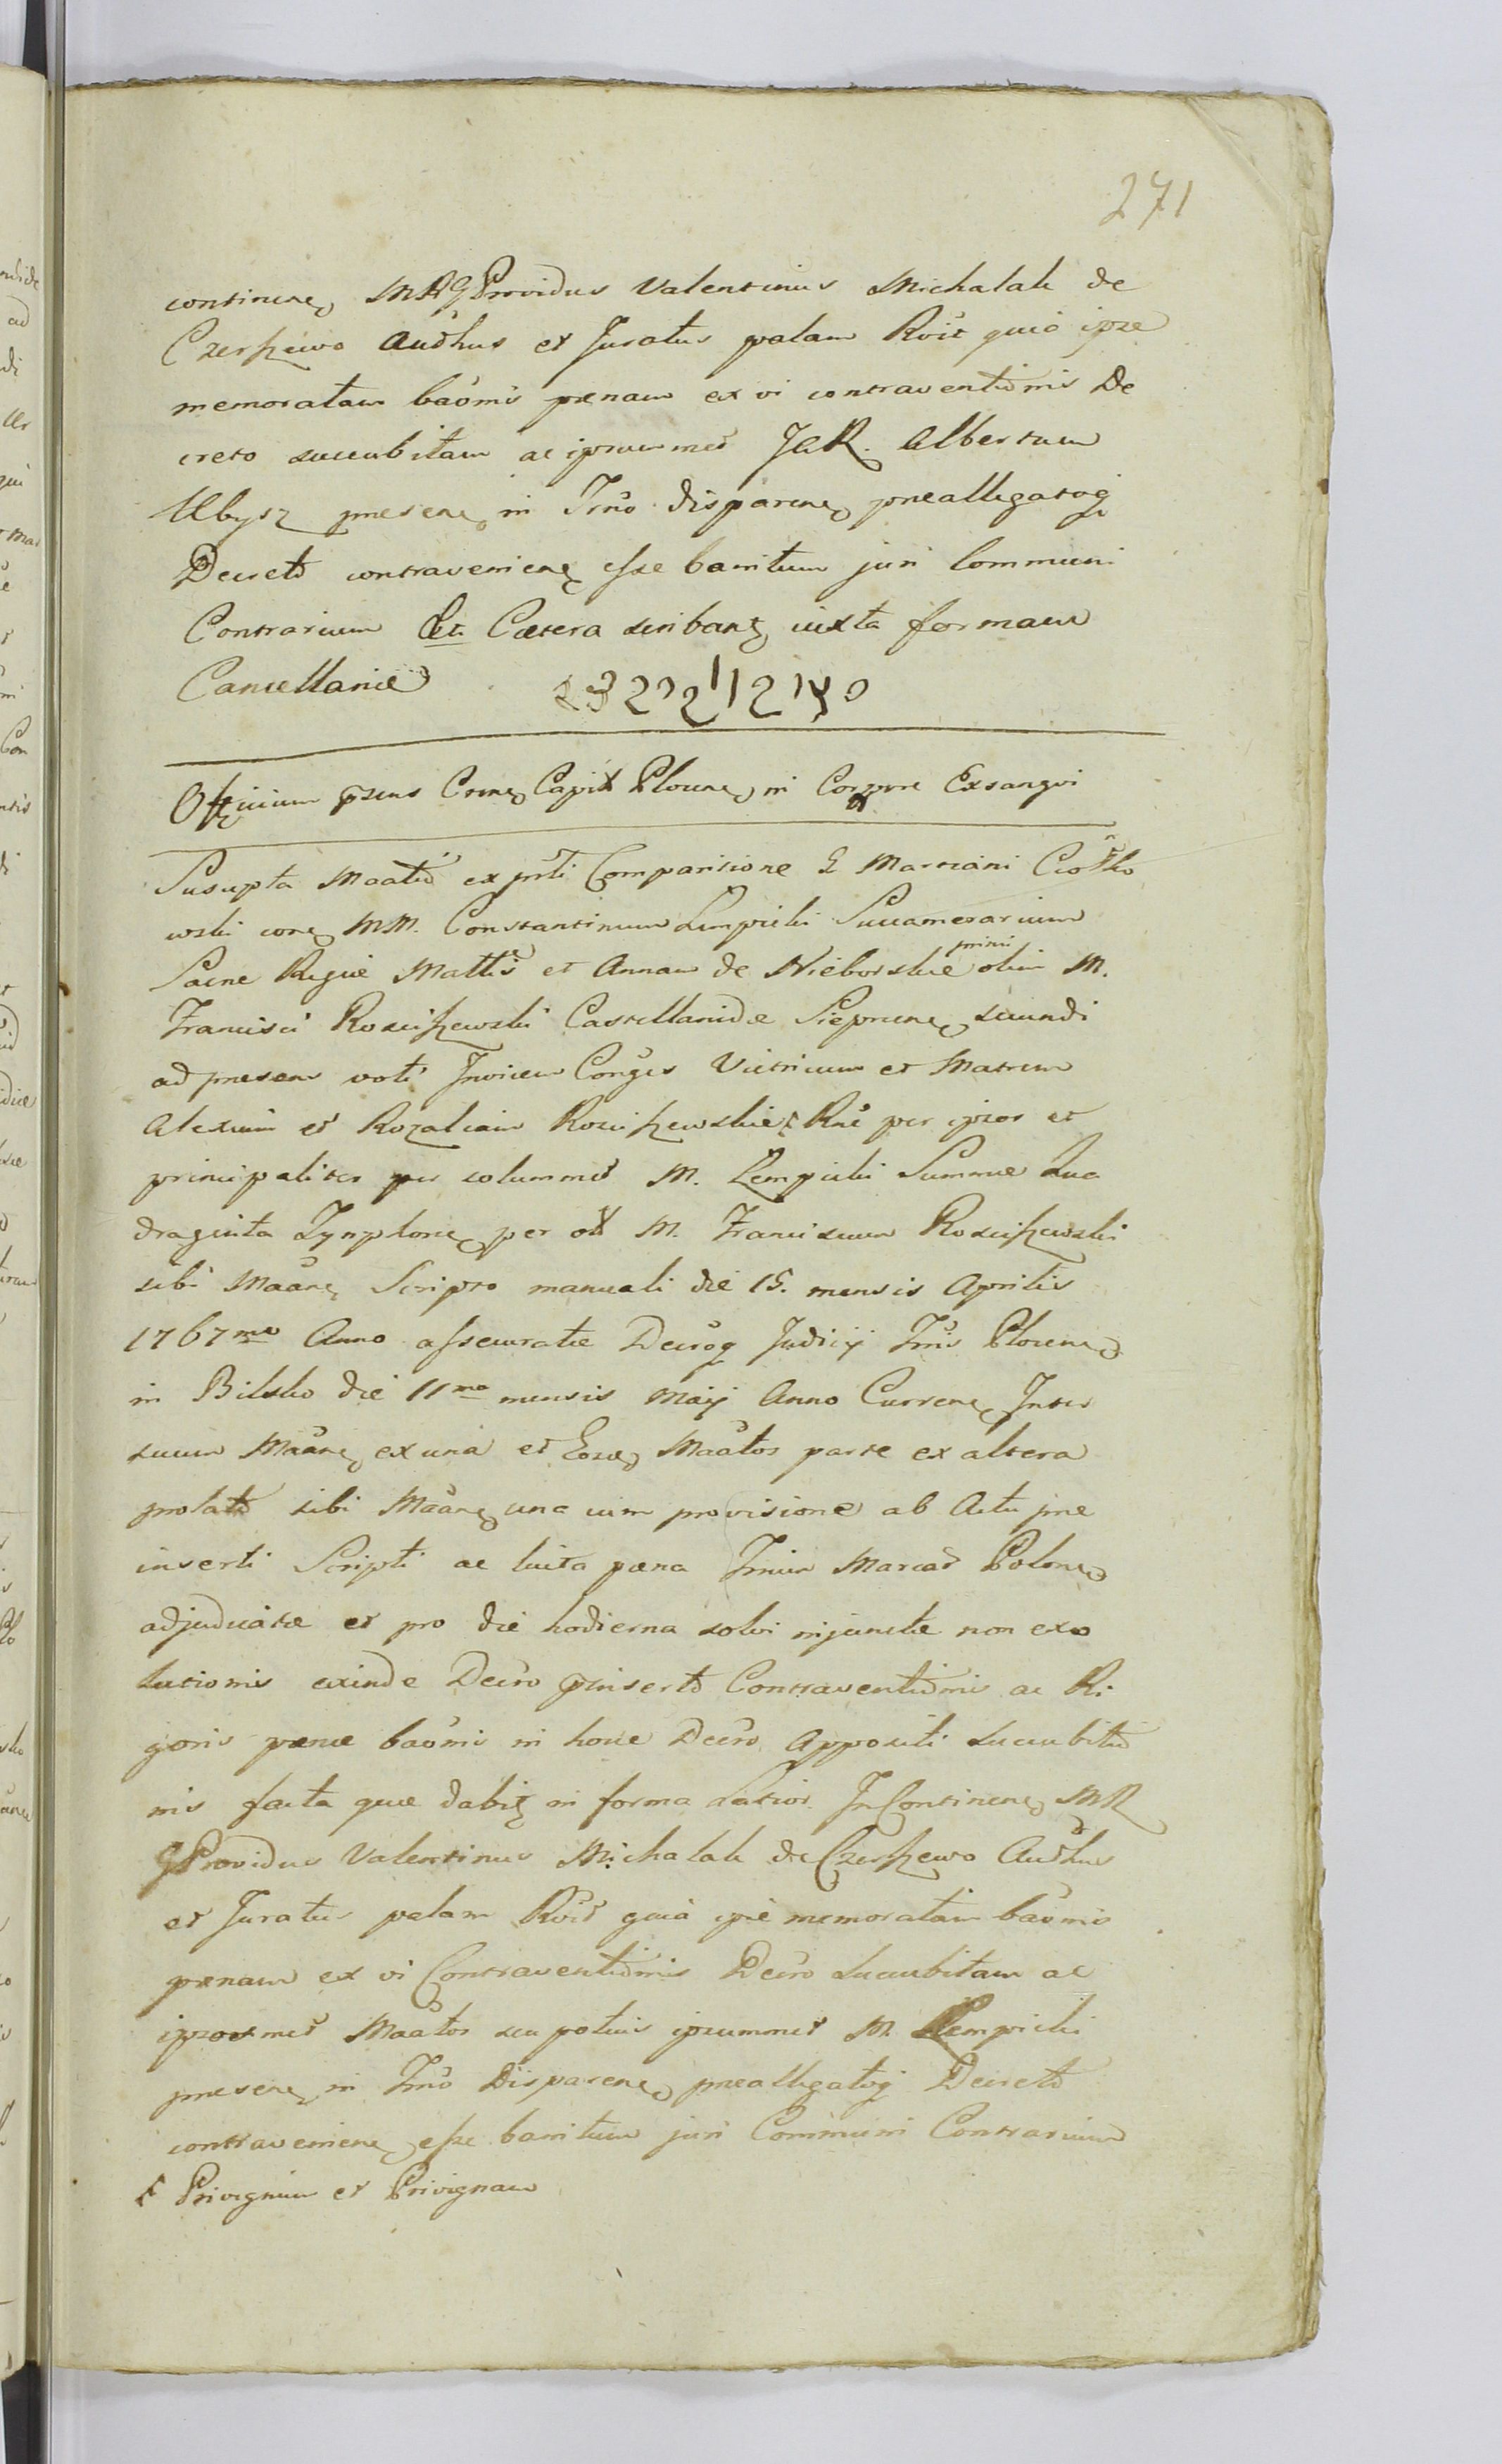 271
continene, MRG Providus Valentinus Michalak de
Czerszewo Audhus et Juratus palam Roit quia ipse
memoratam baonis paenam ex vi contraventionis De
creto succubitam ac ipsummet JaR. Albertum
Ubysz presene, in Trno disparene, preallegatoq
Decreto contraveniene, esse banitum juri Communi
Contrarium Et Caetera scribant, iuxta formam
Cancellariae
Officium prens Crene, Capit Plocene, in Corpore Exsangvi
Suscepta Maatio ex prti Comparitione G Marciani Ciołko
wski core, MM. Constantinum Lempicki Succamerarium
Sacre Regiae Mattis et Annam de Nieborskie primi olim M.
Francisci Rosciszewski Castellanidae Sieprcene, secundi
ad presens voti Invicem Conges Vitricum et Matrem
Alexium et Rozaliam Rosciszewskie Rne per ipsos et
principaliter per solummet M. Lempicki Summae Qua
draginta Tynplone, per olim M. Franciscum Rosciszewski
sibi Maane, Scripto manuali die 15. mensis Aprilis
1767mo Anno assecuratae Decroq Judicij Trnis Plocene,
in Bilsko die 11ma mensis Maij Anno Currene, Inter
suum Maane, ex una et Eosd, Maatos parte ex altera
prolato sibi Maane, una cum provisione ab Actu pre
inserti Scripti ac luita paena Trium Marcar Polone,
adjudicatae et pro die hodierna solvi injunctae non exo
lutionis exinde Decro prinserto Contraventionis ac Ri
goris paenae baonis in hocce Decro Appositi Succubitio
nis facta quae dabit, in forma Latior. In Continene, MR
G Providus Valentinus Michalak de Czerszewo Audhus
et Juratus palam Roit quia ipse memoratam baonis
paenam ex vi Contraventionis Decro Succubitam ac
ipsosmet Maatos seu potius ipsummet M. Lempicki
presene, in Trno Disparene, preallegatoq Decreto
contraveniene, esse banitum juri Communi Contrarium
Privignum et Privignam